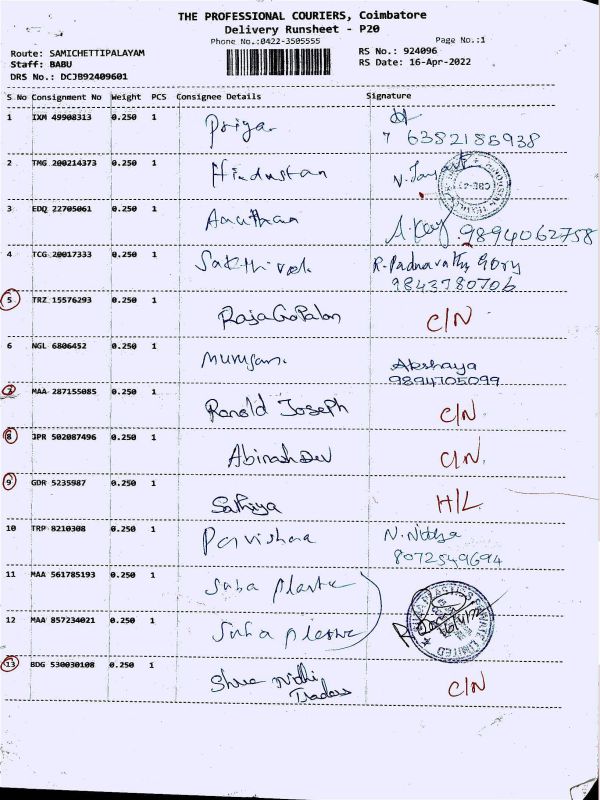 THE PROFESSIONAL COURIERS, Coimbatore
Delivery Runsheet - P20
Phone No.:0422-3505555
Page No.:1
Route: SAMICHETTIPALAYAM
RS No.: 924096
Staff: BABU
RS Date: 16-Apr-2022
DRS No.: DCJB92409601
S No Consignment No Weight PCS Consignee Details Signature
1 IXM 49908313 0.250 1 Priya
7 6382185938
2 TMG 200214373 0.250 1 Hindustan
3 EDQ 22705061 0.250 1
9894062758
4 TCG 20017333 0.250 1 Sakthivel R. Padmavathy
9843780706
5 TRZ 15576293 0.250 1 RajaGoPalan C/N
6 NGL 6806452 0.250 1 Murugan Akshaya
9894705099
7 MAA 287155085 0.250 1 Ronald Joseph C/N
8 JPR 502087496 0.250 1 Abinash Dev C/N
9 GDR 5235987 0.250 1 Sathya H/L
10 TRP 8210308 0.250 1 N. Nithya
8072549694
11 MAA 561785193 0.250 1 Suba Plastic
12 MAA 857234021 0.250 1 Suba Plastic
13 BDG 530030108 0.250 1 Shree Nidhi
Traders
C/N